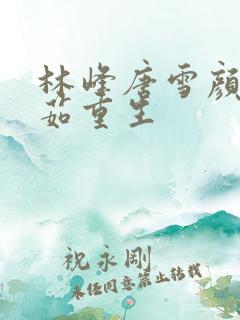 林峰唐雪颜
茹重生
祝永刚
未经同意禁止转载